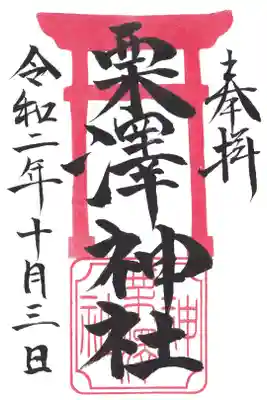 奉拝
栗澤神社
令和二年十月三日